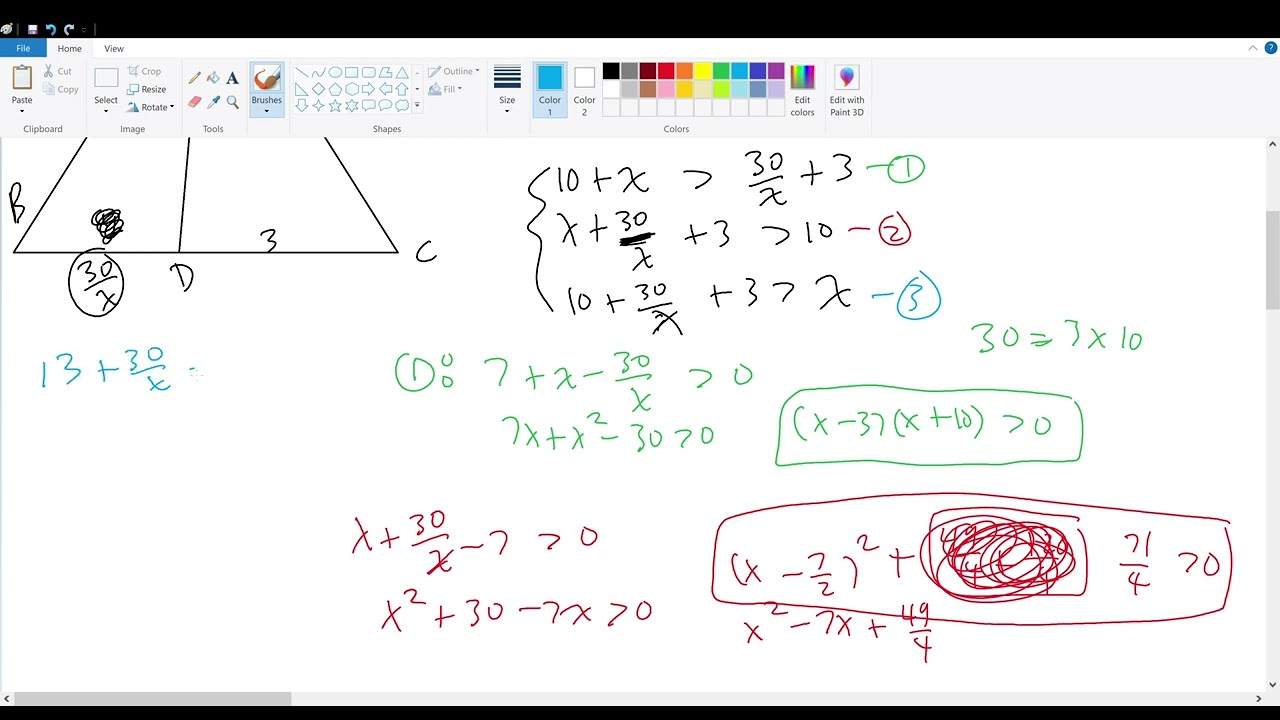 File Home View
Paste Cut Copy Clipboard
Select Crop Resize Rotate Image
Tools
Brushes
Outline Fill Shapes
Size
Color 1 Color 2 Edit colors Colors
Edit with Paint 3D
B
3
C
30/x
D
10 + x > 30/x + 3 - ①
x + 30/x + 3 > 10 - ②
10 + 30/x + 3 > x - ③
30 = 3 x 10
13 + 30/x
①: 7 + x - 30/x > 0
7x + x² - 30 > 0
(x - 3)(x + 10) > 0
x + 30/x - 7 > 0
(x - 7/2)² + 71/4 > 0
x² + 30 - 7x > 0
x² - 7x + 49/4